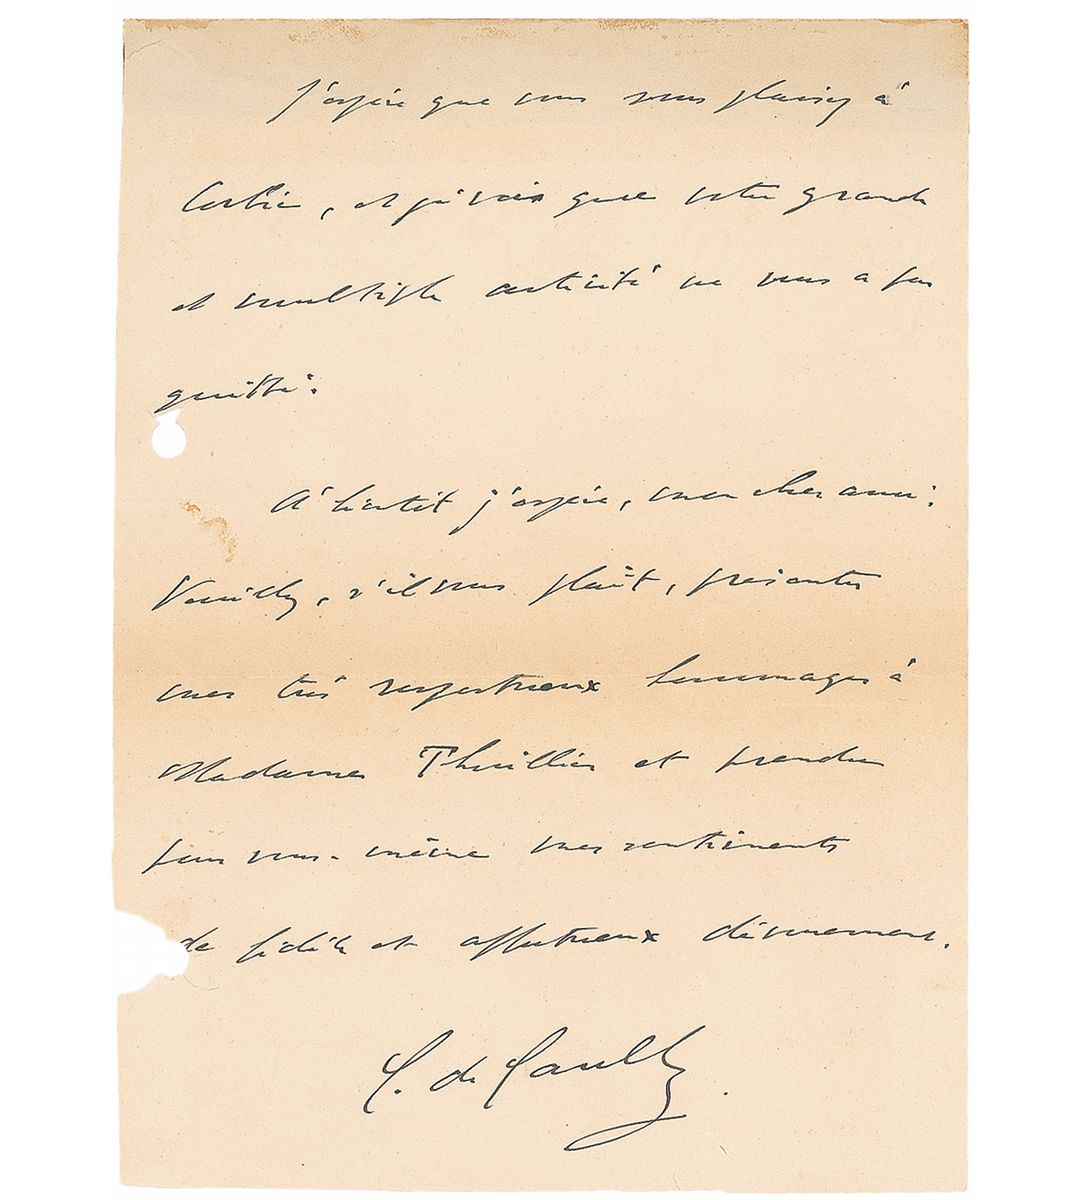 J'espère que vous vous plaisez à
Corbie, et je vois que votre grande
et multiple activité ne vous a pas
quitté.
A bientôt j'espère, mon cher ami.
Veuillez, s'il vous plaît, présenter
mes très respectueux hommages à
Madame Thuillier et prendre
pour vous-même mes sentiments
de fidèle et affectueux dévouement.
C. de Gaulle.